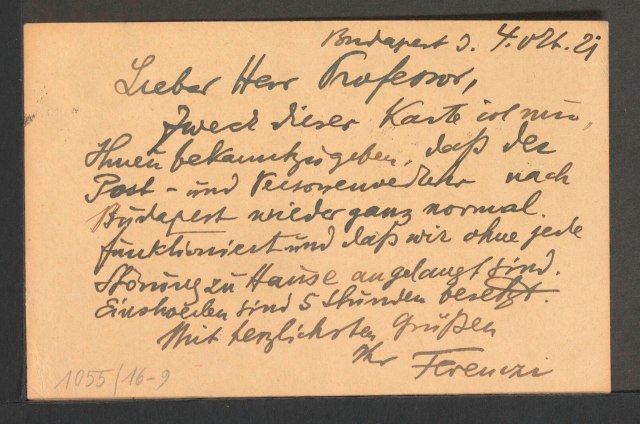 Budapest d. 4. Okt. 21
Lieber Herr Professor,
Zweck dieser Karte ist nur,
Ihnen bekanntzugeben, daß der
Post- und Personenverkehr nach
Budapest wieder ganz normal
funktioniert und daß wir ohne jede
Störung zu Hause angelangt sind.
Einstweilen sind 5 Stunden besetzt.
Mit herzlichsten Grüßen
Ihr Ferenczi
1055/16-9